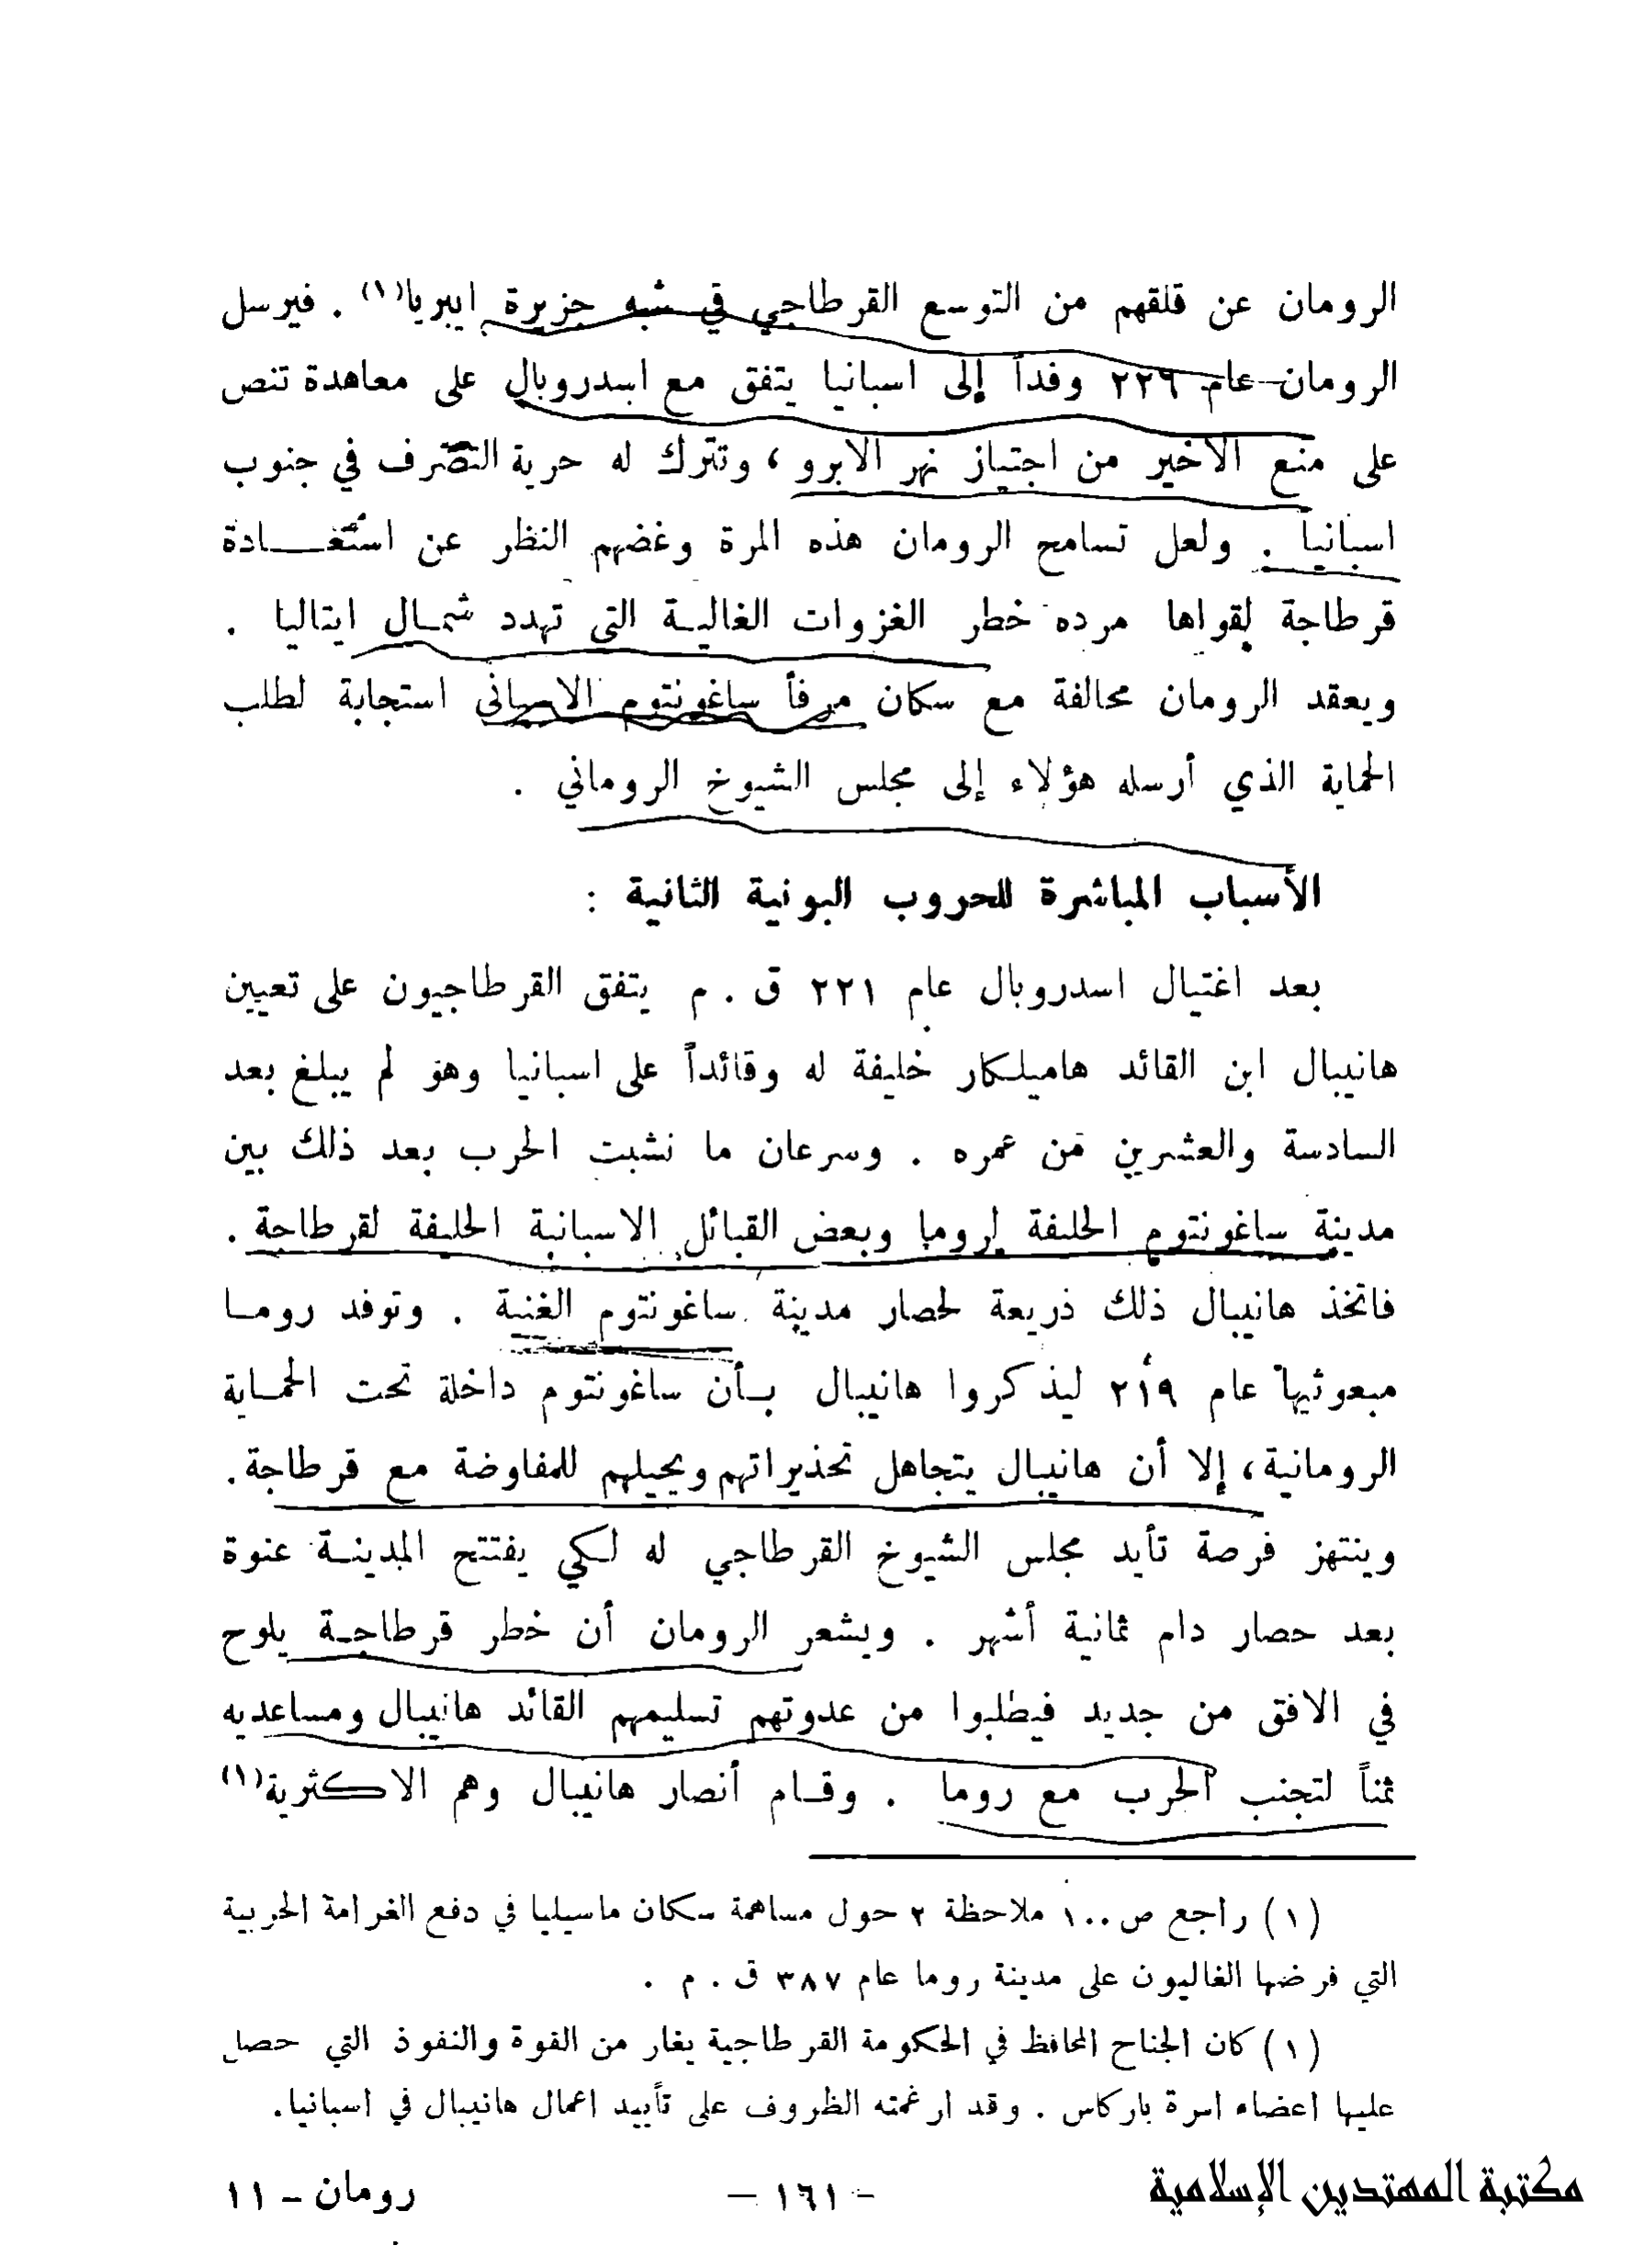 الرومان عن قلقهم من التوسع القرطاجي في شبه جزيرة ايبريا(١) . فيرسل
الرومان عام ٢٢٦ وفداً إلى اسبانيا يتفق مع اسدروبال على معاهدة تنص
على منع الاخير من اجتياز نهر الابرو ، وتترك له حرية التصرف في جنوب
اسبانيا . ولعل تسامح الرومان هذه المرة وغضهم النظر عن استعادة
قرطاجة لقواها مرده خطر الغزوات الغالية التي تهدد شمال ايتاليا .
ويعقد الرومان محالفة مع سكان مرفأ ساغونتوم الاسباني استجابة لطلب
الحماية الذي أرسله هؤلاء إلى مجلس الشيوخ الروماني .
الأسباب المباشرة للحروب البونية الثانية :
بعد اغتيال اسدروبال عام ٢٢١ ق . م يتفق القرطاجيون على تعيين
هانيبال ابن القائد هاميلكار خليفة له وقائداً على اسبانيا وهو لم يبلغ بعد
السادسة والعشرين من عمره . وسرعان ما نشبت الحرب بعد ذلك بين
مدينة ساغونتوم الحليفة لروما وبعض القبائل الاسبانية الحليفة لقرطاجة .
فاتخذ هانيبال ذلك ذريعة لحصار مدينة ساغونتوم الغنية . وتوفد روما
مبعوثيها عام ٢١٩ ليذكروا هانيبال بأن ساغونتوم داخلة تحت الحماية
الرومانية، إلا أن هانيبال يتجاهل تحذيراتهم ويحيلهم للمفاوضة مع قرطاجة.
وينتهز فرصة تأيد مجلس الشيوخ القرطاجي له لكي يفتتح المدينة عنوة
بعد حصار دام ثمانية أشهر . ويشعر الرومان أن خطر قرطاجة يلوح
في الافق من جديد فيطلبوا من عدوتهم تسليمهم القائد هانيبال ومساعديه
ثمناً لتجنب الحرب مع روما . وقام أنصار هانيبال وهم الاكثرية(١)
(١) راجع ص ١٠٠ ملاحظة ٢ حول مساهمة سكان ماسيليا في دفع الغرامة الحربية
التي فرضها الغاليون على مدينة روما عام ٣٨٧ ق . م .
(١) كان الجناح المحافظ في الحكومة القرطاجية يغار من القوة والنفوذ التي حصل
عليها اعضاء اسرة باركاس . وقد ارغمته الظروف على تأييد اعمال هانيبال في اسبانيا.
مكتبة المهتدين الإسلامية
- ١٦١ -
رومان - ١١